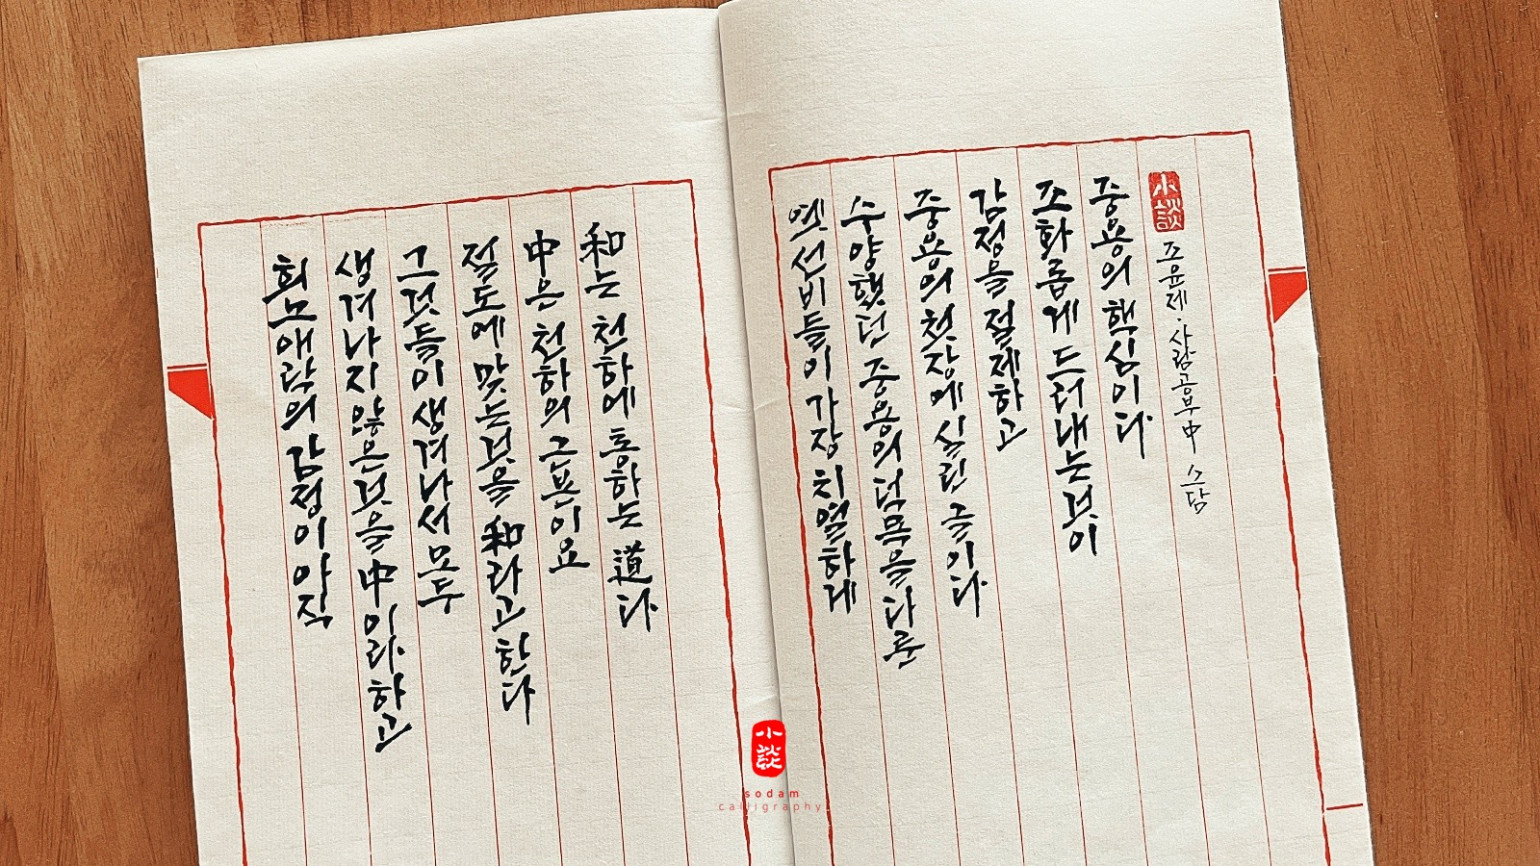 희노애락의 감정이 아직
생겨나지 않은 것을 中이라 하고
그것들이 생겨나서 모두
절도에 맞는 것을 和라고 한다
中은 천하의 근본이요
和는 천하에 통하는 道다
옛 선비들이 가장 치열하게
수양했던 중용의 덕목을 다룬
중용의 첫장에 실린 글이다
감정을 절제하고
조화롭게 드러내는 것이
중용의 핵심이다
小談
조윤제·사람공부 中 소담
小談
sodam
calligraphy